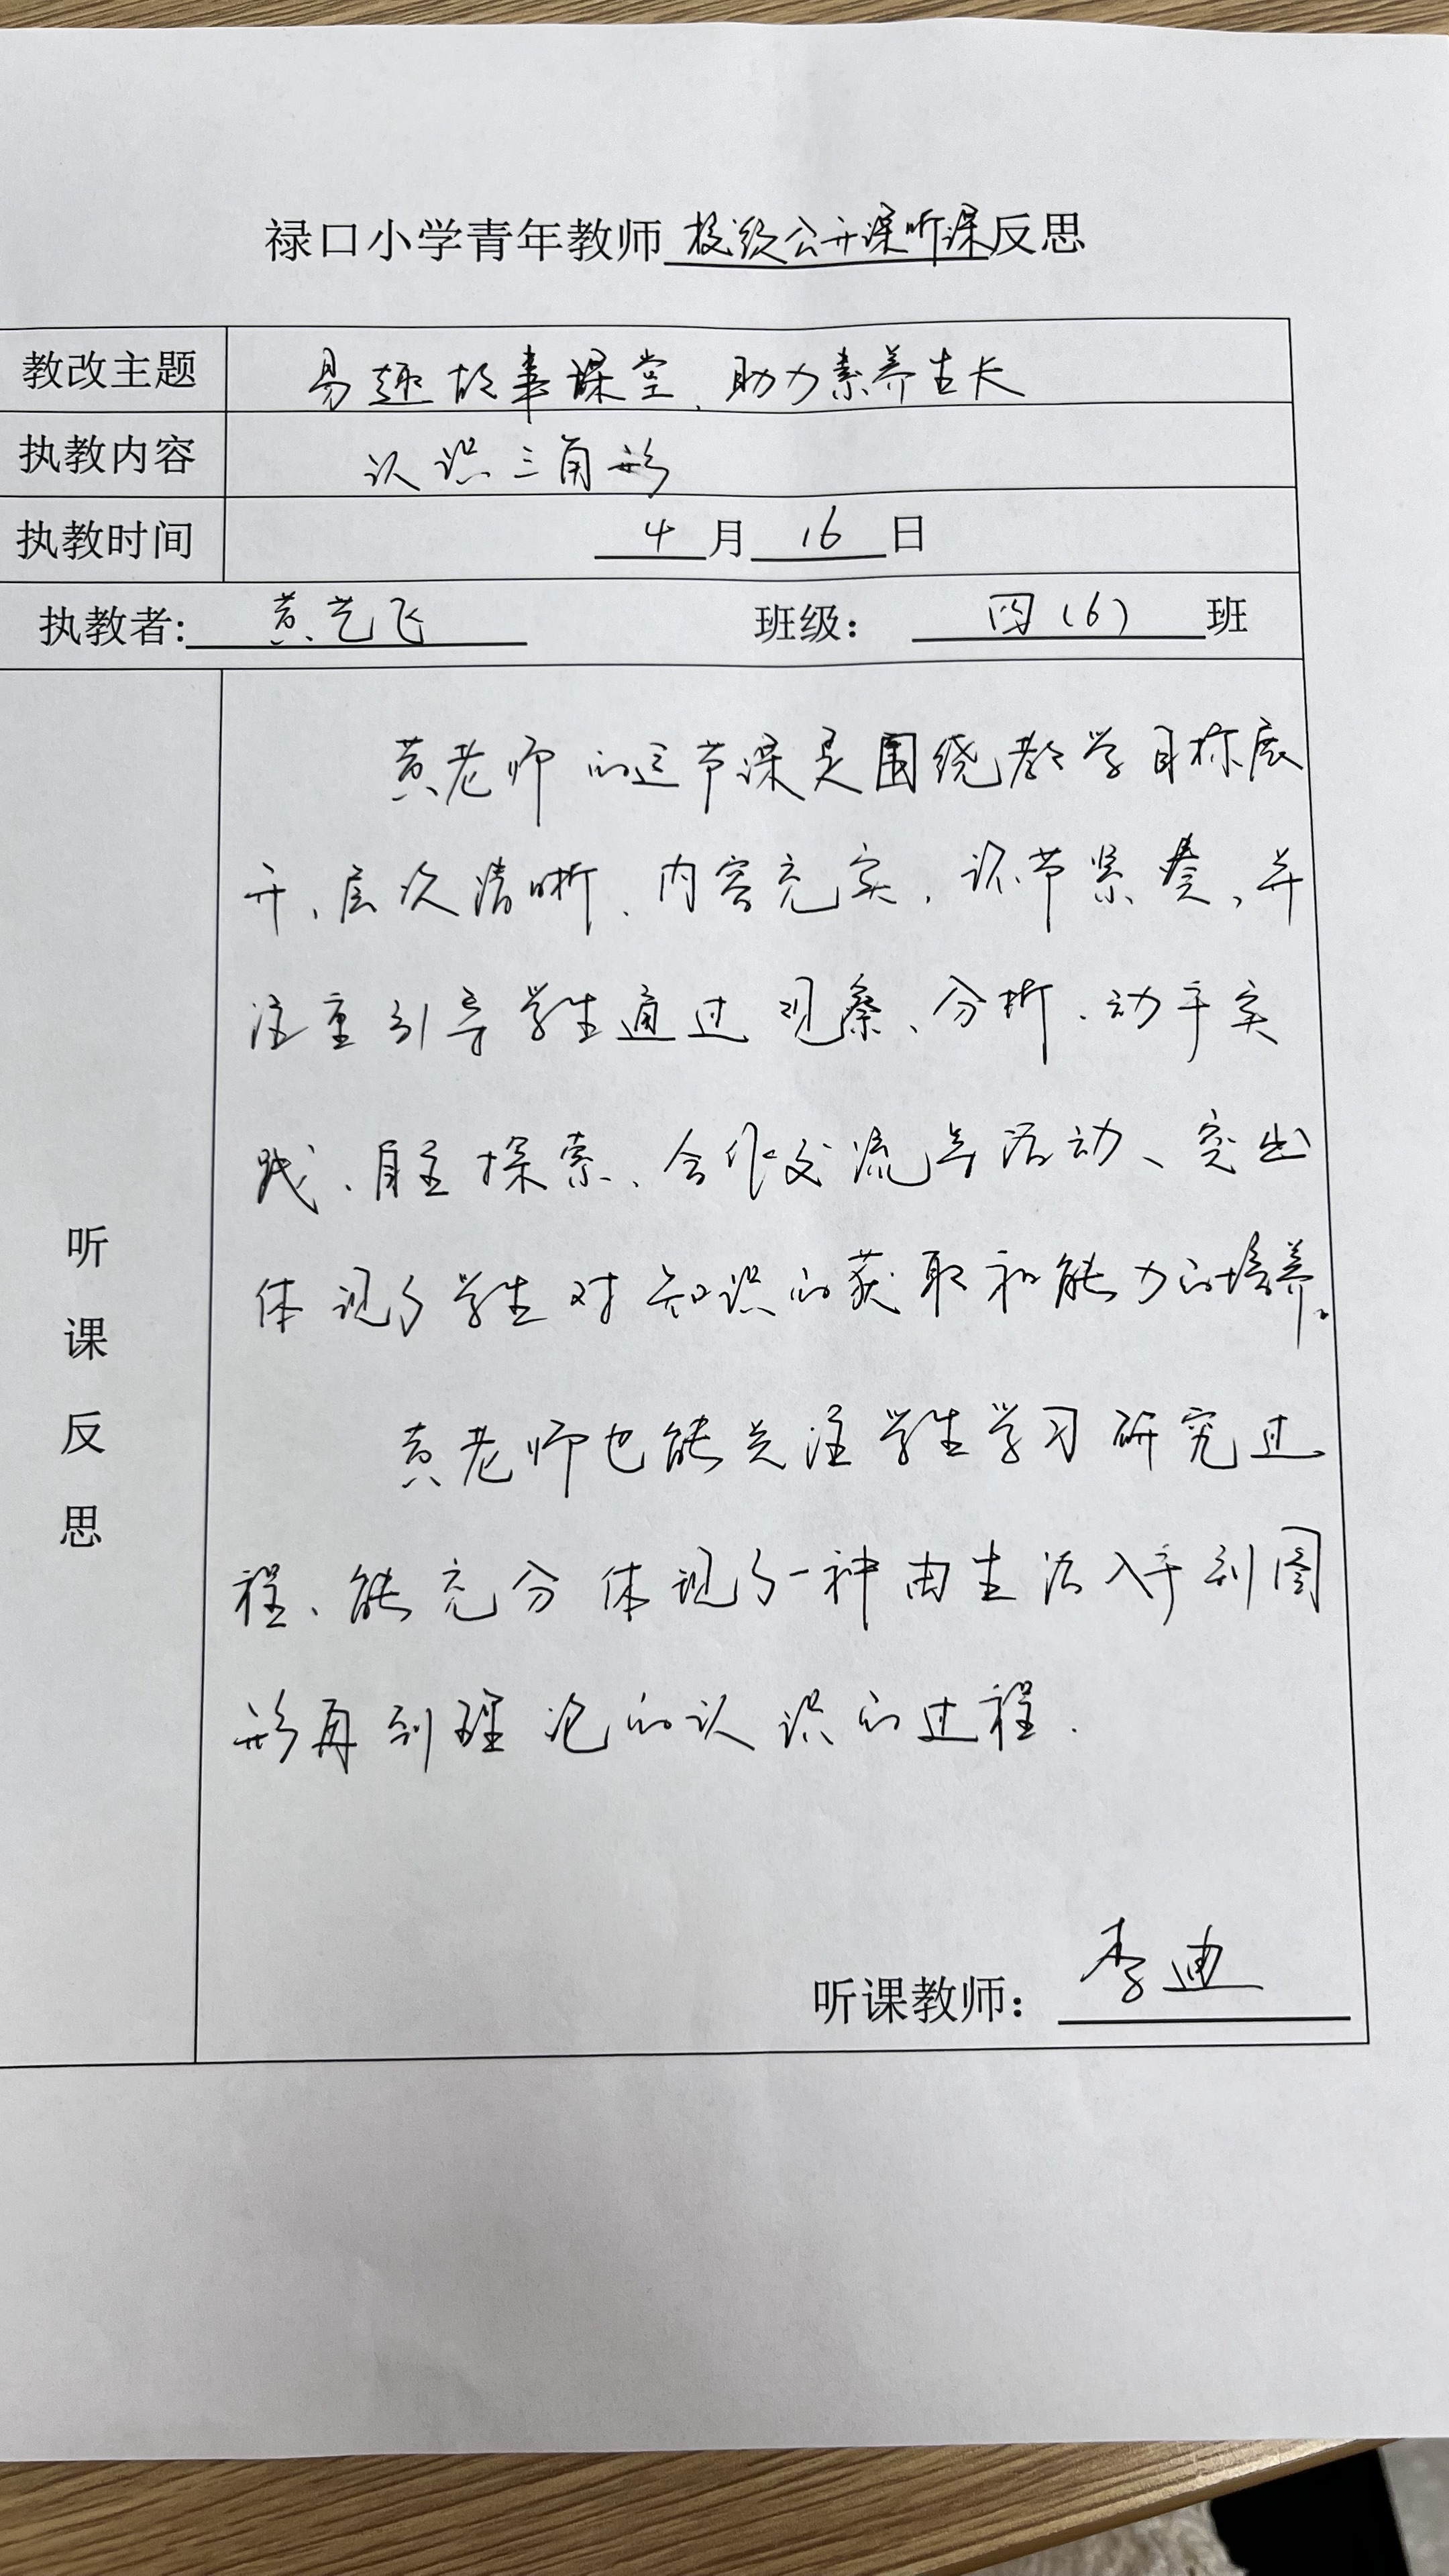 禄口小学青年教师校级公开课听课反思
教改主题 易趣故事课堂、助力素养生长
执教内容 认识三角形
执教时间 4月16日
执教者:黄艺飞 班级：四(6)班
听课反思
黄老师的这节课是围绕教学目标展
开、层次清晰、内容充实、环节紧凑，并
注重引导学生通过观察、分析、动手实
践、自主探索、合作交流等活动、突出
体现了学生对知识的获取和能力的培养。
黄老师也能关注学生学习研究过
程、能充分体现了一种由生活入手到图
形再到理论的认识的过程.
听课教师：李迪